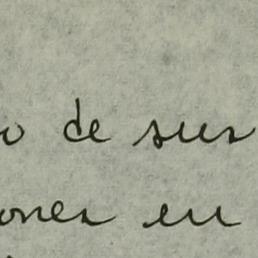 o de sus
ones en